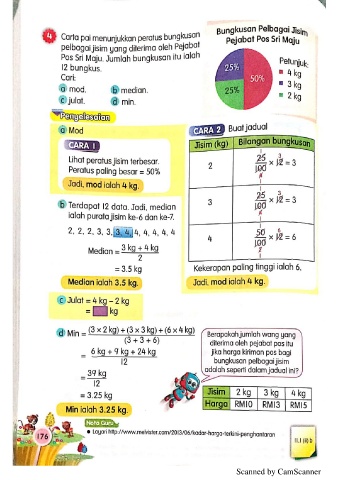 4 Carta pai menunjukkan peratus bungkusan
pelbagai jisim yang diterima oleh Pejabat
Pos Sri Maju. Jumlah bungkusan itu ialah
12 bungkus.
Cari:
a mod. b median.
c julat. d min.
Bungkusan Pelbagai Jisim
Pejabat Pos Sri Maju
25%
50%
25%
Petunjuk:
4 kg
3 kg
2 kg
Penyelesaian
a Mod
CARA 1
Lihat peratus jisim terbesar.
Peratus paling besar = 50%
Jadi, mod ialah 4 kg.
CARA 2 Buat jadual
Jisim (kg) Bilangan bungkusan
2 25/100 × 12 = 3
3 25/100 × 12 = 3
4 50/100 × 12 = 6
Kekerapan paling tinggi ialah 6.
Jadi, mod ialah 4 kg.
b Terdapat 12 data. Jadi, median
ialah purata jisim ke-6 dan ke-7.
2, 2, 2, 3, 3, 3, 4, 4, 4, 4, 4, 4
Median = (3 kg + 4 kg)/2
= 3.5 kg
Median ialah 3.5 kg.
c Julat = 4 kg – 2 kg
= kg
d Min = ((3 × 2 kg) + (3 × 3 kg) + (6 × 4 kg))/(3 + 3 + 6)
= (6 kg + 9 kg + 24 kg)/12
= 39 kg/12
= 3.25 kg
Min ialah 3.25 kg.
Berapakah jumlah wang yang
diterima oleh pejabat pos itu
jika harga kiriman pos bagi
bungkusan pelbagai jisim
adalah seperti dalam jadual ini?
Jisim 2 kg 3 kg 4 kg
Harga RM10 RM13 RM15
Nota Guru
176
Scanned by CamScanner